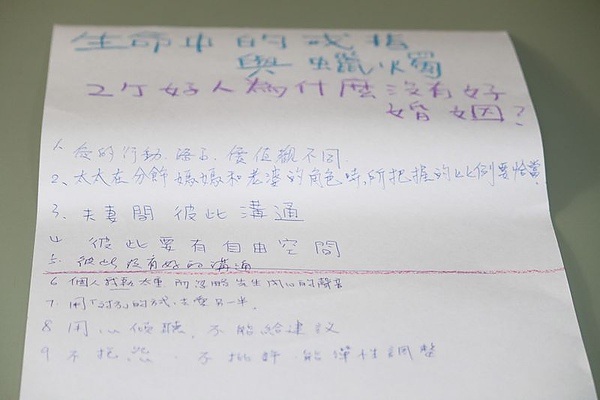 生命中的戒指
與蠟燭
2个好人為什麼沒有好
婚姻?
1、愛的行動、語言、價值觀不同.
2、太太在分飾媽媽和老婆的角色時,所把握的比例要恰當.
3. 夫妻間 彼此溝通
4. 彼此要有自由空間
5. 彼此沒有好的溝通
6 個人執著太重 而忽略 內心的聲音
7. 用「對方」的方式,去愛另一半.
8 用心傾聽、不能給建議
9 不抱怨、不批評、能彈性調整